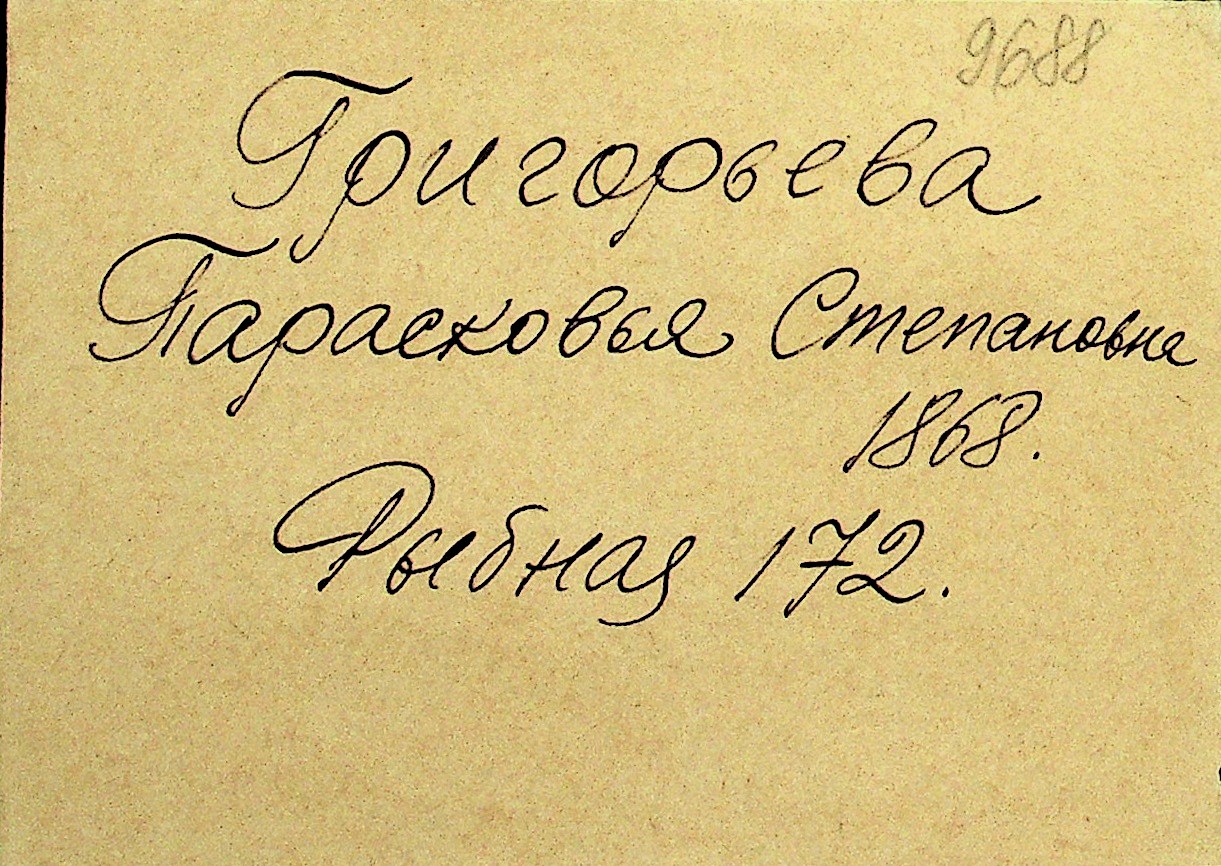 9688
Григорьева
Парасковья Степановна
1868.
Рыбная 172.